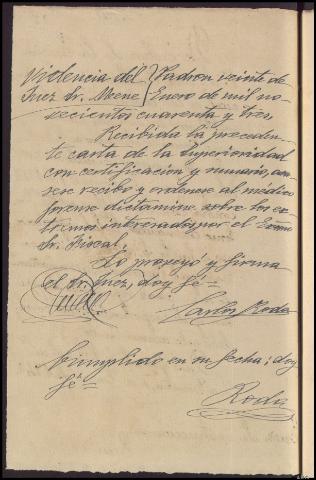 Providencia del / Padron veinte de
Juez Sr. Meene / Enero de mil no-
vecientos cuarenta y tres
Recibida la preceden-
te carta de la Superioridad
con certificación y sumario, acu-
sese recibo y ordenese al médico
forense dictamine sobre los ex-
tremos interesados por el Exmo
Sr. Fiscal.
Lo proveyó y firma
el Sr. Juez, doy fe=
Carlos Roda
Cumplido en su fecha; doy
fe=
Roda